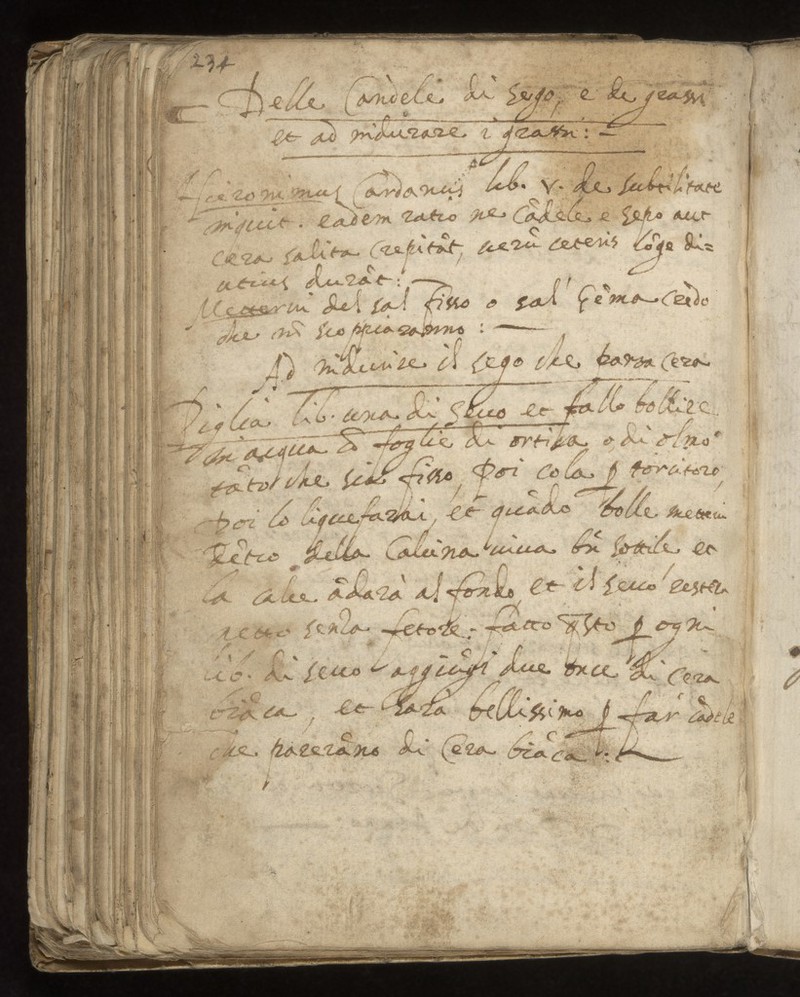 234
Delle Candele di sego, e de grassi
et ad indurare i grassi: -
Hieronimus Cardanus lib. v. de subtilitate
inquit. eadem ratio ne cãdele e sepo aut
cera salita crepitãt, uerũ ceteris lõge di=
utius durãt: -
Metterui del sal fisso o sal gẽma credo
che nõ scoppiaranno : -
Ad indurire il sego che parra cera
Piglia lib. una di seuo et fallo bollire
in acqua cõ foglie di ortica o di olmo
tãto che sia fisso, Poi cola ꝑ torcitoro,
Poi lo liquefarai, et quãdo bolle metteui
dẽtro della Calcina uiua bñ sottile et
la calce ãdarà al fondo et il seuo restera
netto senza fetore: fatto q̃sto ꝑ ogni
lib. di seuo aggiũgi due once di cera
biãca, et sarà bellissimo ꝑ far cãdele
che parerãno di Cera biãca: -